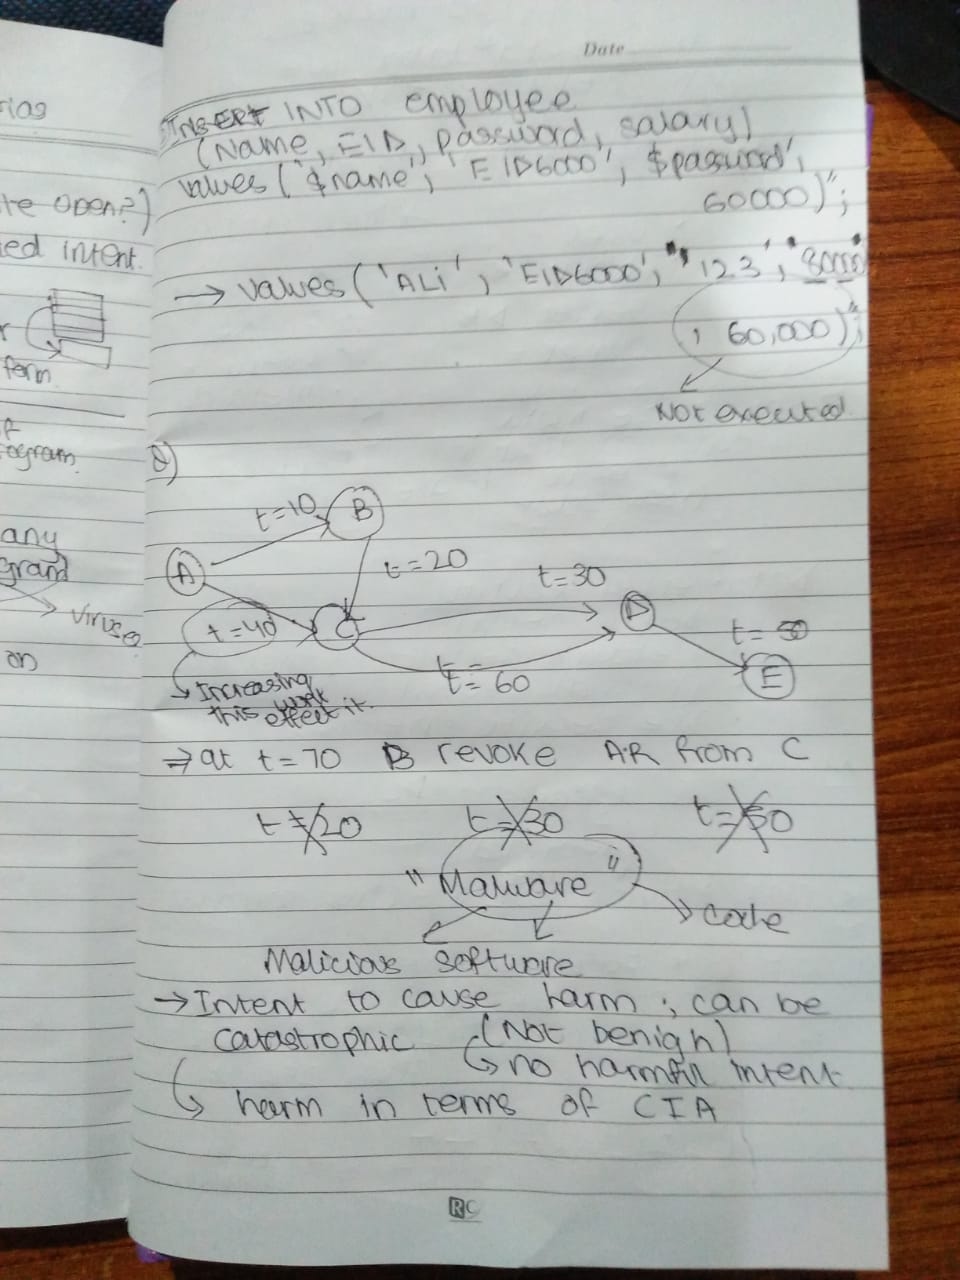 rias
te open?)
ied intent.
r
form
ogram.
any
gram
viruses
on
Date
INSERT INTO employee
(Name, EID, password, salary)
values ('$name', 'EID6000', $password',
60000)";
→ values ('ALi', 'EID6000', '123', '8000'
, 60,000)";
Not executed
Q)
t=10
B
A
t=20
t=30
t=40
C
D
t=50
E
t=60
Increasing
this work
effect it.
⇒ at t=70 B revoke AR from C
t=20 t=30 t=50
"Malware"
code
Malicious software
→ Intent to cause harm; can be
catastrophic (Not benign)
↳ no harmful intent
↳ harm in terms of CIA
RC